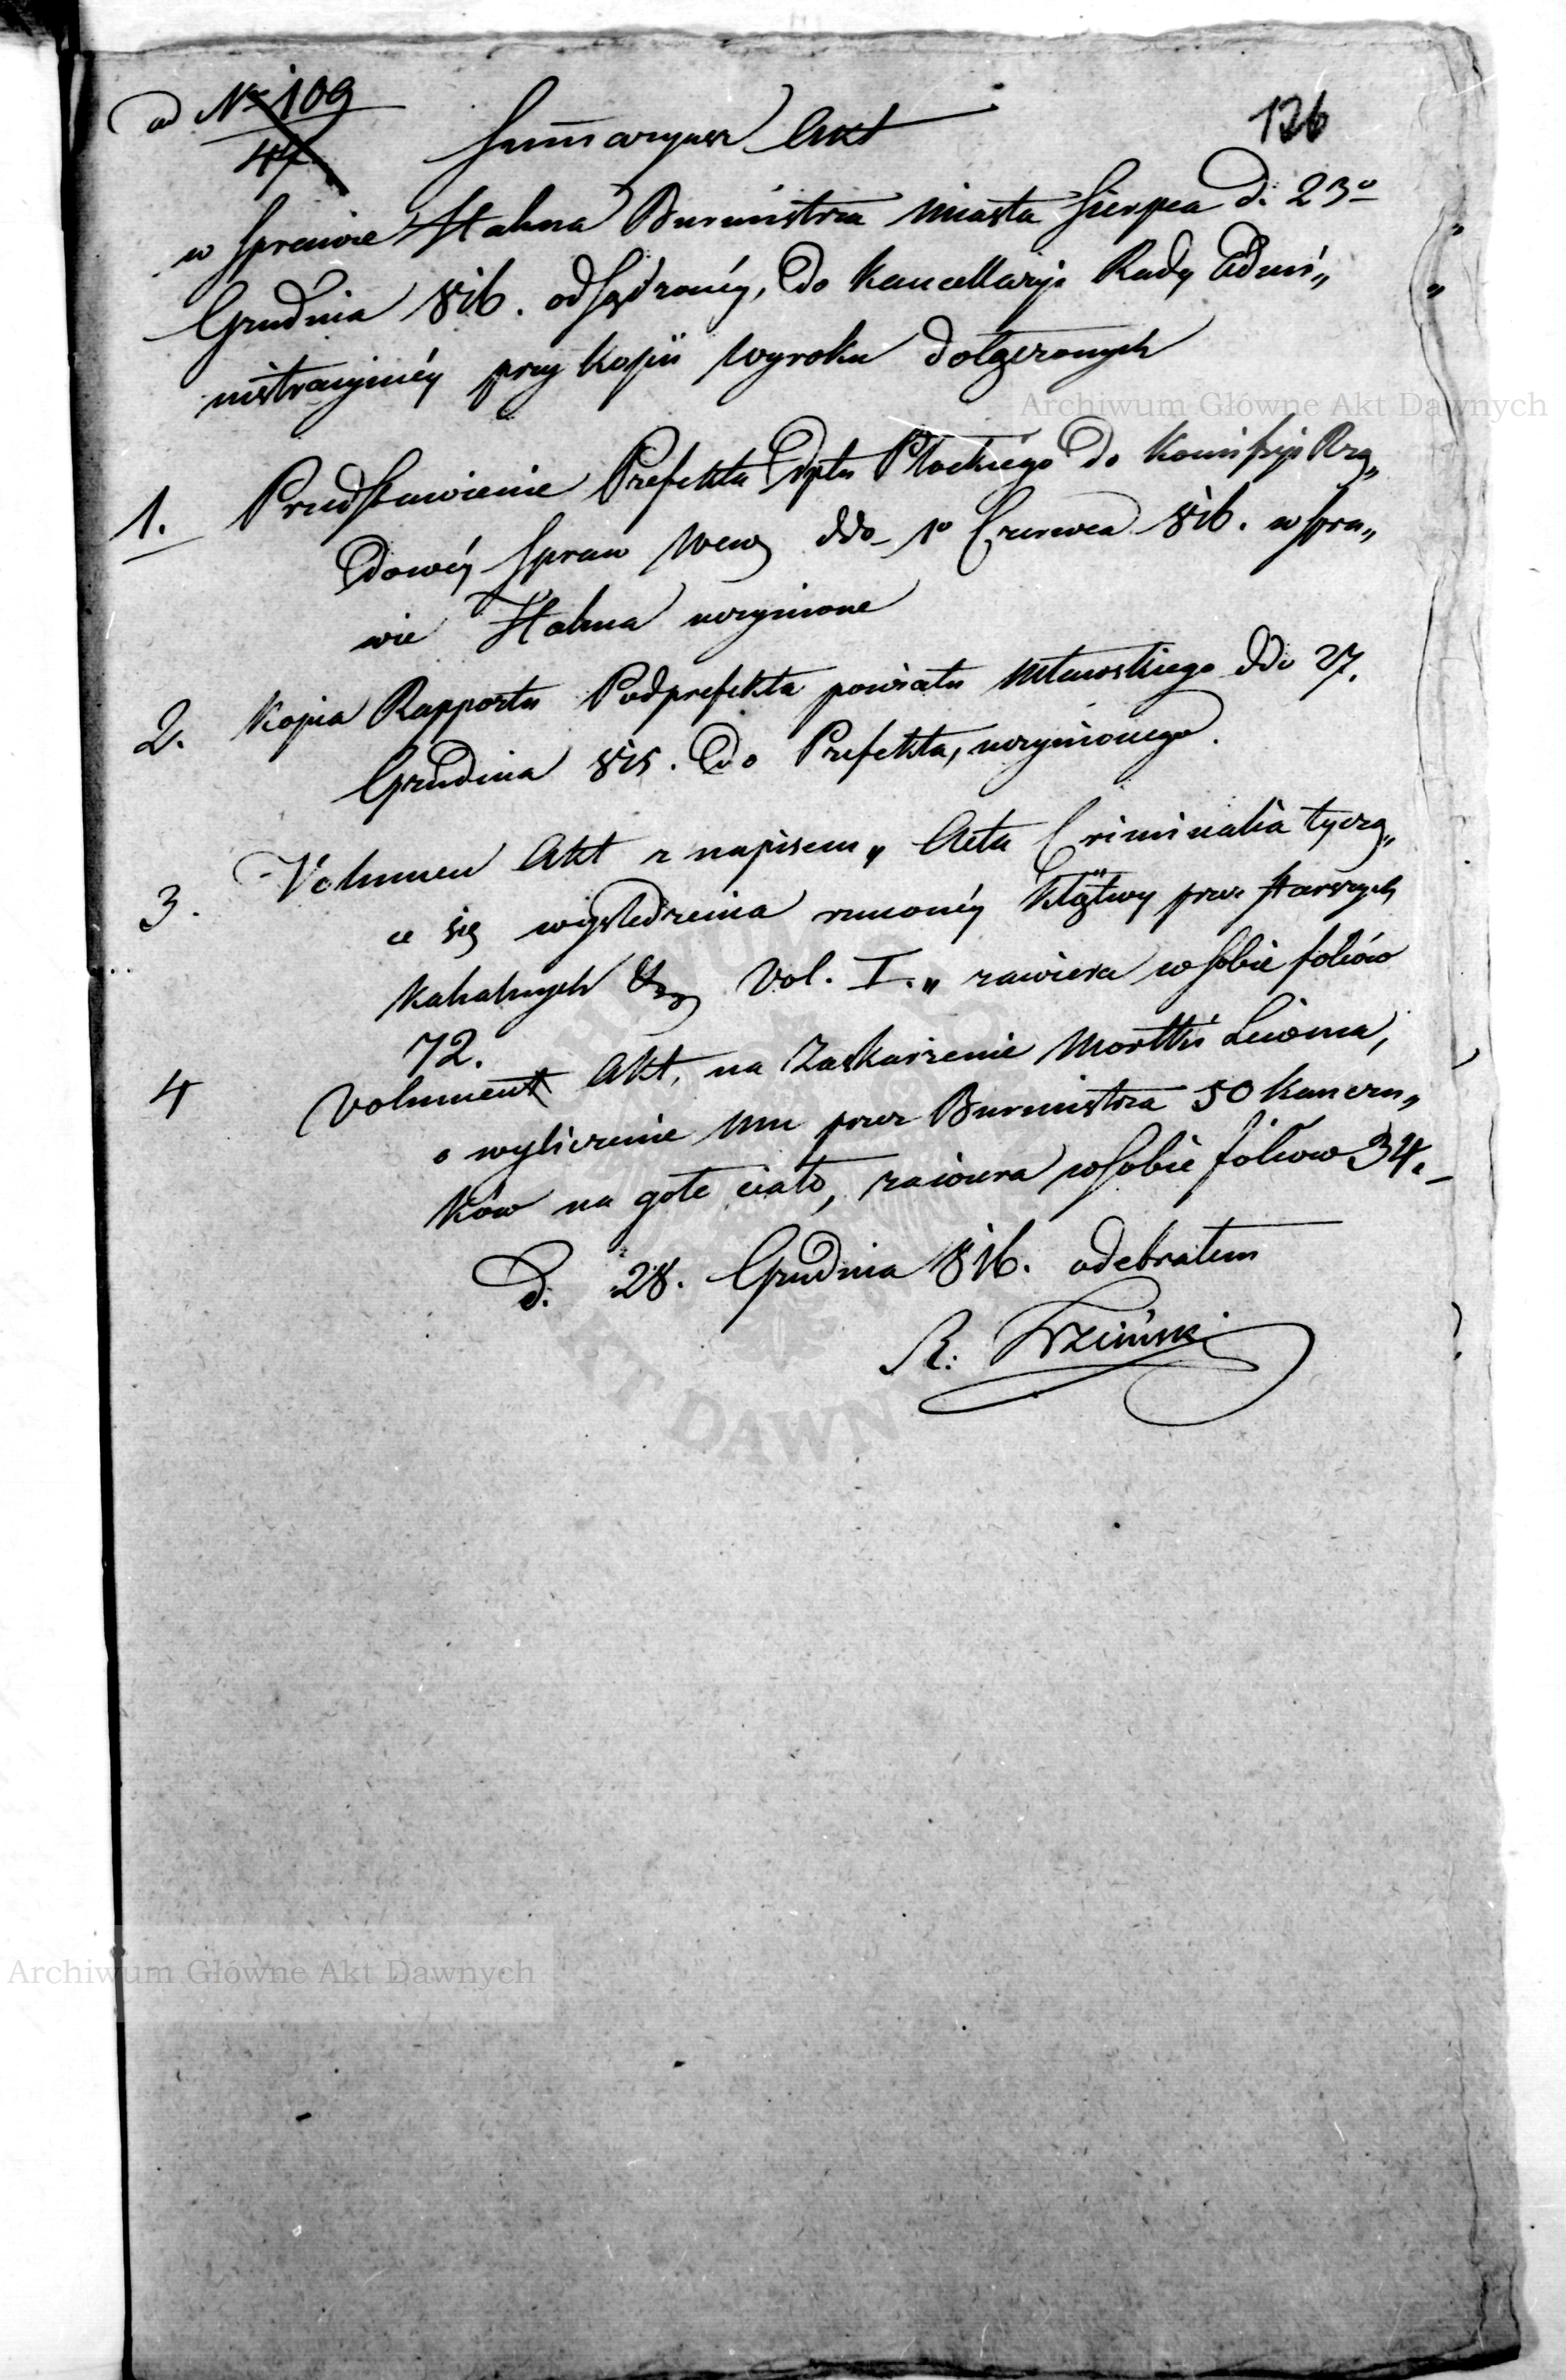 ad No 109
47.
126
Summaryusz Akt
w Sprawie Hahna Burmistrza miasta Sierpca d. 23o
Grudnia 816. odsądzonéy, do Kancellaryi Rady Admi„
nistracyinéy przy kopii wyroku dołączonych
1. Przedstawienie Prefekta Dptu Płockiego do Kommissyi Rzą„
dowéy Spraw Wew ddo 1o Czerwca 816. w Spra„
wie Hahna uczynione
2. Kopia Rapportu Podprefekta powiatu Mławskiego ddo 27.
Grudnia 815. do Prefekta, uczynionego.
3. Volumen Akt z napisem „ Acta Criminalia tyczą„
ce się wyśledzenia rzuconéy klątwy przez starszych
kahalnych Vol. I. „ zawiera w sobie foliów
72.
4 Volumen Akt, na zaskarżenie Mortki Lewina,
o wyliczenie mu przez Burmistrza 50 kanczu„
ków na gołe ciało, zawiera w sobie foliów 34.
d. 28. Grudnia 816. odebrałem
R.
Archiwum Główne Akt Dawnych
Archiwum Główne Akt Dawnych